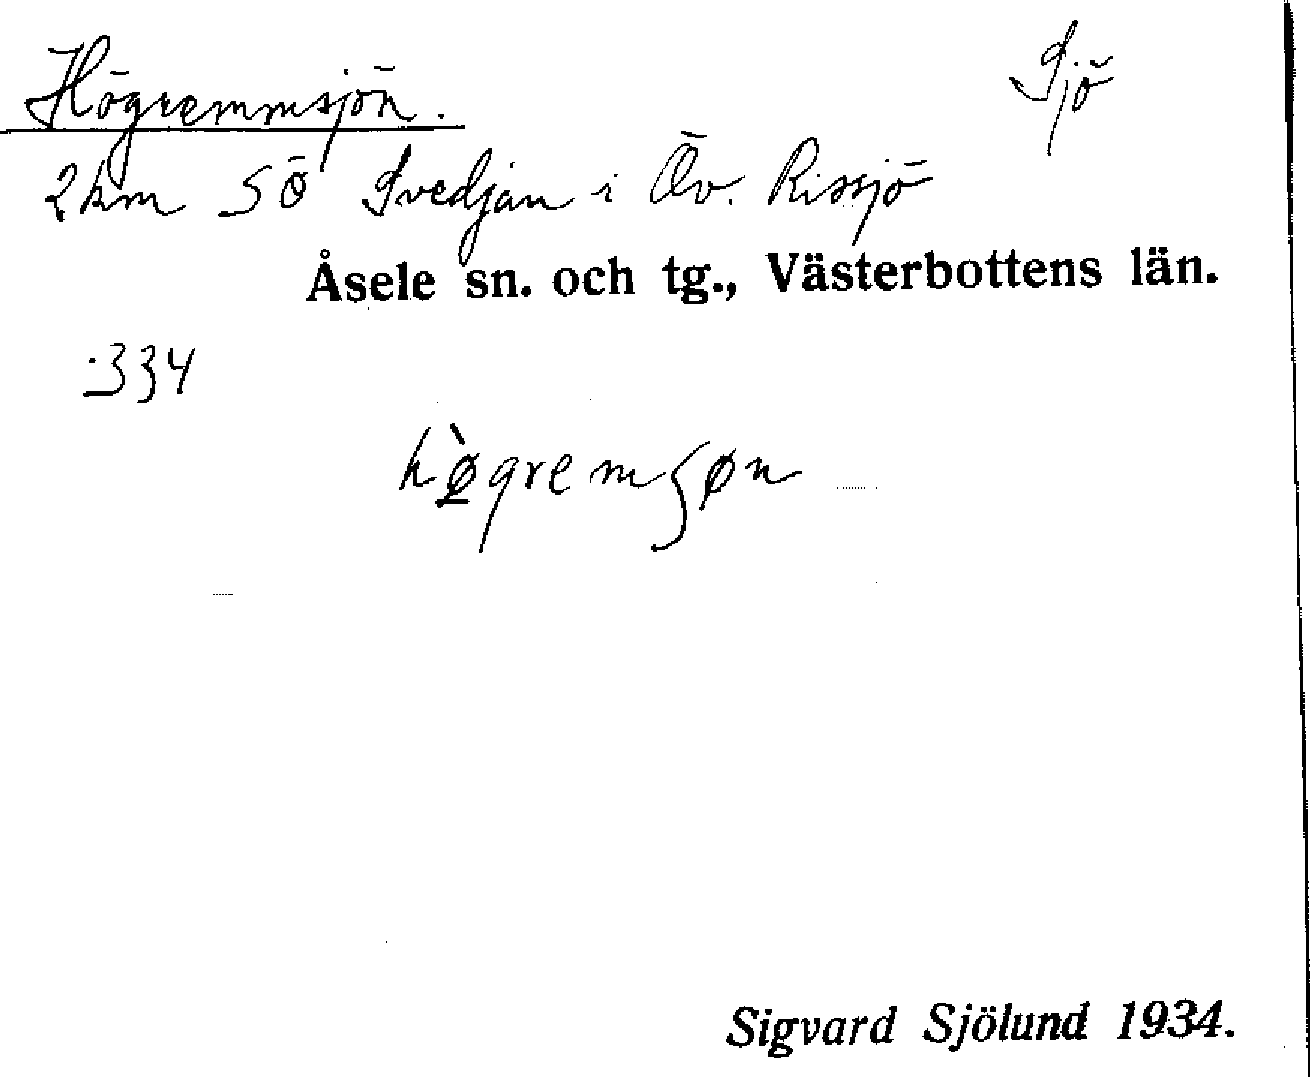 Högremmsjön. Sjö
2 km SÖ Svedjan i Öv. Rissjö
Åsele sn. och tg., Västerbottens län.
334
hø̀gremʃøn
Sigvard Sjölund 1934.